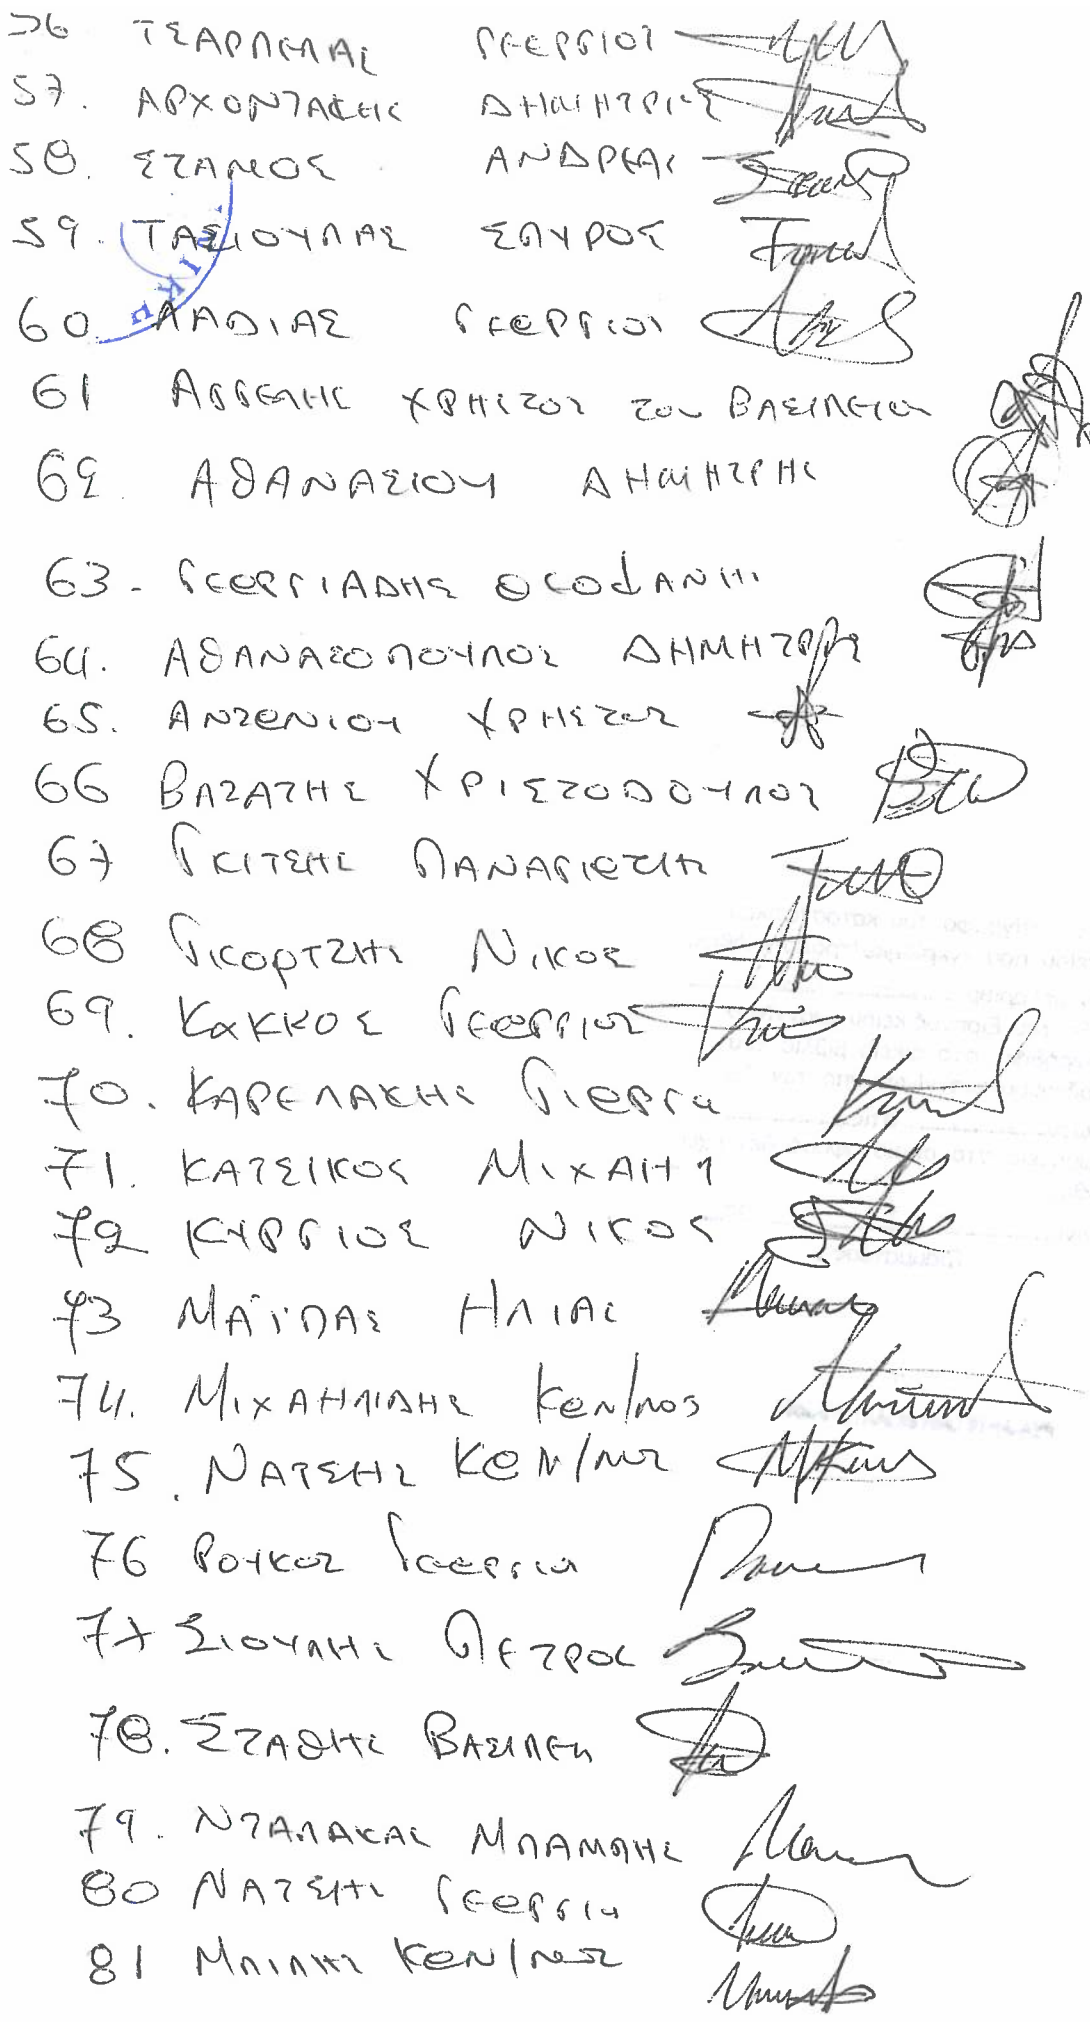 56 ΤΣΑΡΠΕΛΑΣ ΓΕΩΡΓΙΟΣ
57. ΑΡΧΟΝΤΑΚΗΣ ΔΗΜΗΤΡΙΟΣ
58. ΣΤΑΜΟΣ ΑΝΔΡΕΑΣ
59. ΤΑΣΙΟΥΛΑΣ ΣΠΥΡΟΣ
60. ΛΑΘΙΑΣ ΓΕΩΡΓΙΟΣ
61 ΑΓΓΕΛΗΣ ΧΡΗΣΤΟΣ του ΒΑΣΙΛΕΙΟΥ
62. ΑΘΑΝΑΣΙΟΥ ΔΗΜΗΤΡΗΣ
63- ΓΕΩΡΓΙΑΔΗΣ ΘΕΟΦΑΝΗΣ
64. ΑΘΑΝΑΣΟΠΟΥΛΟΣ ΔΗΜΗΤΡΗΣ
65. ΑΝΤΩΝΙΟΥ ΧΡΗΣΤΟΣ
66 ΒΑΤΑΤΗΣ ΧΡΙΣΤΟΔΟΥΛΟΣ
67 ΓΚΙΤΣΗΣ ΠΑΝΑΓΙΩΤΗΣ
68 ΓΚΟΡΤΖΗΣ ΝΙΚΟΣ
69. ΚΑΚΚΟΣ ΓΕΩΡΓΙΟΣ
70. ΚΑΡΕΛΑΚΗΣ ΓΙΩΡΓΟΣ
71. ΚΑΤΣΙΚΟΣ ΜΙΧΑΗΛ
72 ΚΥΡΓΙΟΣ ΝΙΚΟΣ
73 ΜΑΪΠΑΣ ΗΛΙΑΣ
74. ΜΙΧΑΗΛΙΔΗΣ ΚΩΝ/ΝΟΣ
75. ΝΑΤΣΗΣ ΚΩΝ/ΝΟΣ
76 ΡΟΥΚΟΣ ΓΕΩΡΓΙΟΣ
77 ΣΙΟΥΛΗΣ ΠΕΤΡΟΣ
78. ΣΤΑΘΗΣ ΒΑΣΙΛΕΙΟΣ
79. ΝΤΑΛΑΚΑΣ ΜΠΑΜΠΗΣ
80 ΝΑΤΣΗΣ ΓΕΩΡΓΙΟΣ
81 ΜΠΙΛΗΣ ΚΩΝ/ΝΟΣ